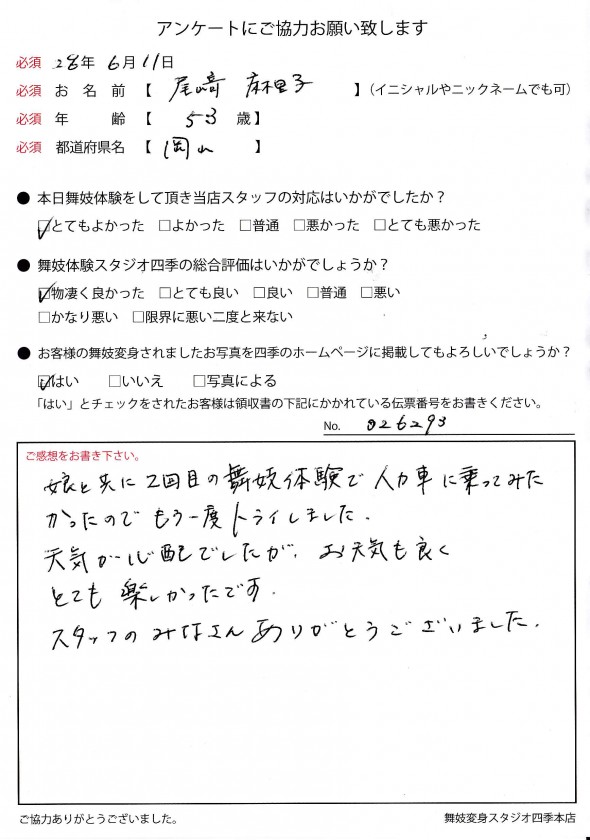 アンケートにご協力お願い致します
必須 28年 6月11日
必須 お名前【 尾崎 麻里子 】(イニシャルやニックネームでも可)
必須 年齢【 53 歳】
必須 都道府県名【 岡山 】
● 本日舞妓体験をして頂き当店スタッフの対応はいかがでしたか?
☑とてもよかった □よかった □普通 □悪かった □とても悪かった
● 舞妓体験スタジオ四季の総合評価はいかがでしょうか?
☑物凄く良かった □とても良い □良い □普通 □悪い
□かなり悪い □限界に悪い二度と来ない
● お客様の舞妓変身されましたお写真を四季のホームページに掲載してもよろしいでしょうか?
☑はい □いいえ □写真による
「はい」とチェックをされたお客様は領収書の下記にかかれている伝票番号をお書きください。
No. 026293
ご感想をお書き下さい。
娘と共に2回目の舞妓体験で人力車に乗ってみた
かったのでもう一度トライしました.
天気が心配でしたが、お天気も良く
とても楽しかったです.
スタッフのみなさんありがとうございました.
ご協力ありがとうございました。
舞妓変身スタジオ四季本店